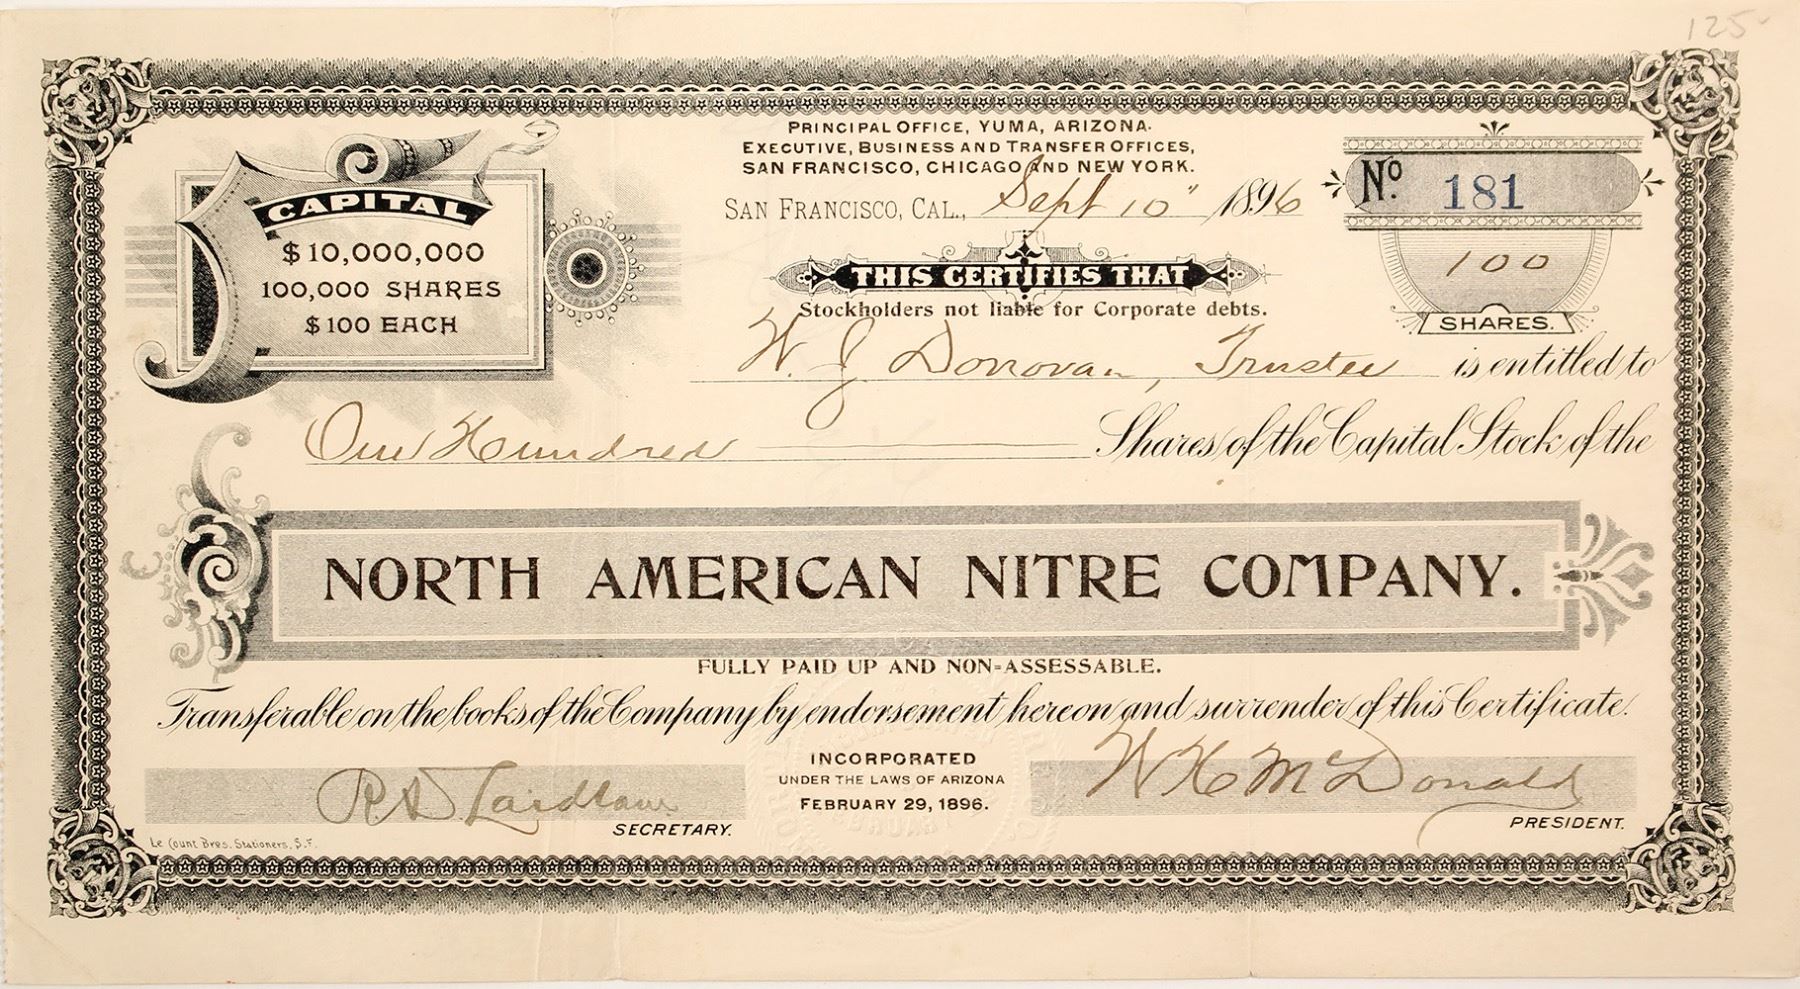 125-
PRINCIPAL OFFICE, YUMA, ARIZONA.
EXECUTIVE, BUSINESS AND TRANSFER OFFICES,
SAN FRANCISCO, CHICAGO AND NEW YORK.
SAN FRANCISCO, CAL., Sept 10" 1896
No. 181
100
SHARES.
CAPITAL
$10,000,000
100,000 SHARES
$100 EACH
THIS CERTIFIES THAT
Stockholders not liable for Corporate debts.
W. J. Donovan, Trustee is entitled to
One Hundred Shares of the Capital Stock of the
NORTH AMERICAN NITRE COMPANY.
FULLY PAID UP AND NON=ASSESSABLE.
Transferable on the books of the Company by endorsement hereon and surrender of this Certificate.
INCORPORATED
UNDER THE LAWS OF ARIZONA
FEBRUARY 29, 1896.
R. D. Laidlaw
SECRETARY.
W H McDonald
PRESIDENT.
Le Count Bros. Stationers, S.F.